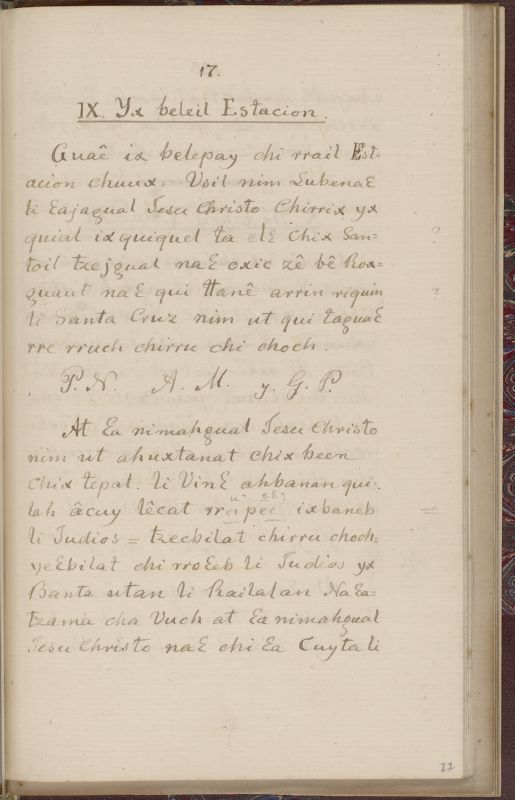 17.
IX. Yx beleil Estacion.
Guaê ix belepay chi rrail Est-
acion chuux. Usil nim LubenaƐ
li Eajagual Jesu Christo Chirrix yx
quial ixquiquel ta Chix San=
toil tzejgual naƐ oxic zê bê Rox= ?
guaut naƐ qui ttanê arrin riquin ?
li Santa Cruz nim ut qui taguaƐ
rre rruch chirru chi choch.
P. N. A. M. y. G. P.
At Ea nimahgual Jesu Christo
nim ut ahuxtanat chix been
chix tepal. li VinƐ ahbanan qui.
lah âcuy lêcat ixbaneb =
li Judios = tzecbilat chirru choch=
yeƐbilat chi rroƐeb li Judios yx
Banta utan li Railalan NaƐa=
tzama cha Vuch at Ea nimahgual
Jesu Christo naƐ chi Ea Cuyta li
22